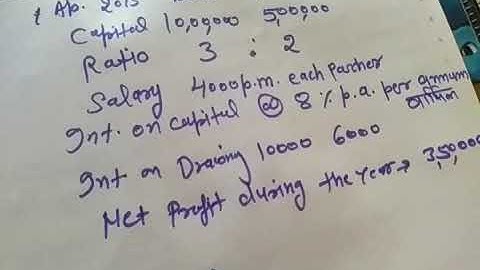 1 Ap. 2015
Capital 10,00,000 5,00,000
Ratio 3 : 2
Salary 4000 p.m. each Partner
Int. on capital @ 8 % p.a. per annum
वार्षिक
Int on Drawing 10000 6000
Net Profit during the Year → 3,50,000